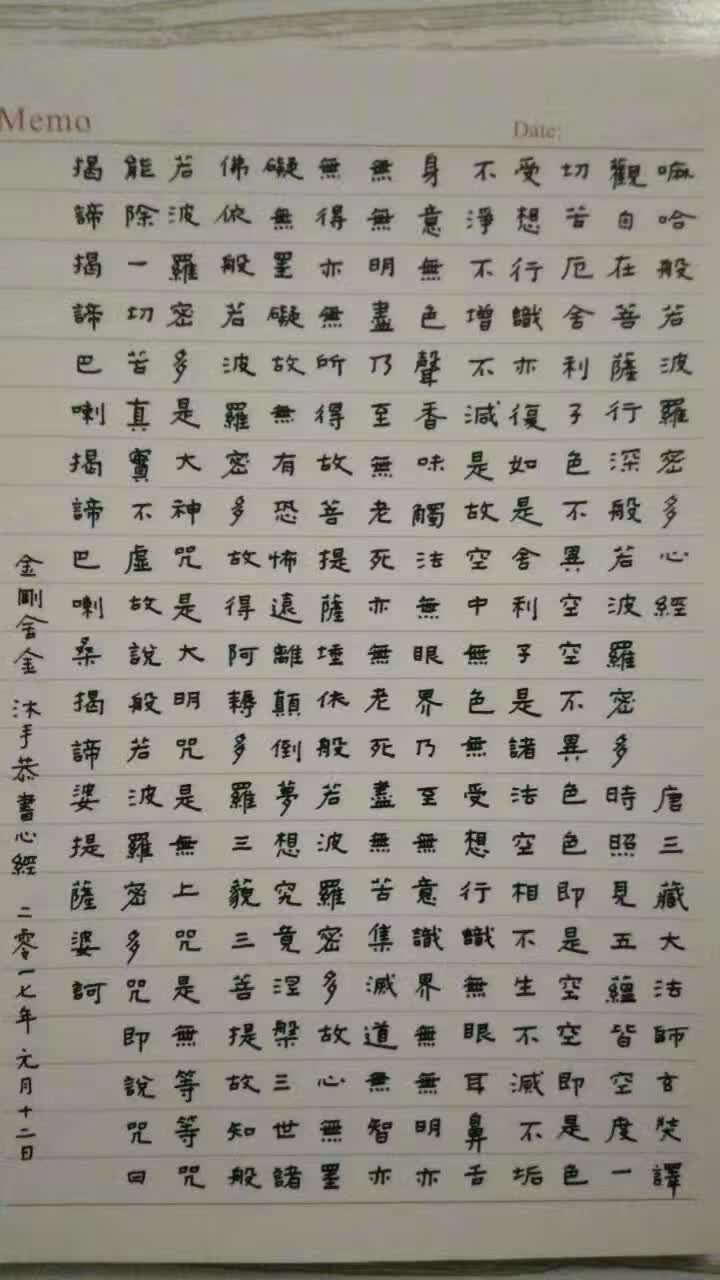 Memo
Date:
嘛哈般若波羅密多心經 唐三藏大法師玄奘譯
觀自在菩薩行深般若波羅密多時照見五蘊皆空度一
切苦厄舍利子色不異空空不異色色即是空空即是色
受想行識亦復如是舍利子是諸法空相不生不滅不垢
不淨不增不減是故空中無色無受想行識無眼耳鼻舌
身意無色聲香味觸法無眼界乃至無意識界無無明亦
無無明盡乃至無老死亦無老死盡無苦集滅道無智亦
無得亦無所得故菩提薩埵依般若波羅密多故心無罣
礙無罣礙故無有恐怖遠離顛倒夢想究竟涅槃三世諸
佛依般若波羅密多故得阿耨多羅三藐三菩提故知般
若波羅密多是大神咒是大明咒是無上咒是無等等咒
能除一切苦真實不虛故說般若波羅密多咒即說咒曰
揭諦揭諦巴喇揭諦巴喇桑揭諦婆提薩婆訶
金剛舍金 沐手恭書心經 二零一七年元月十二日